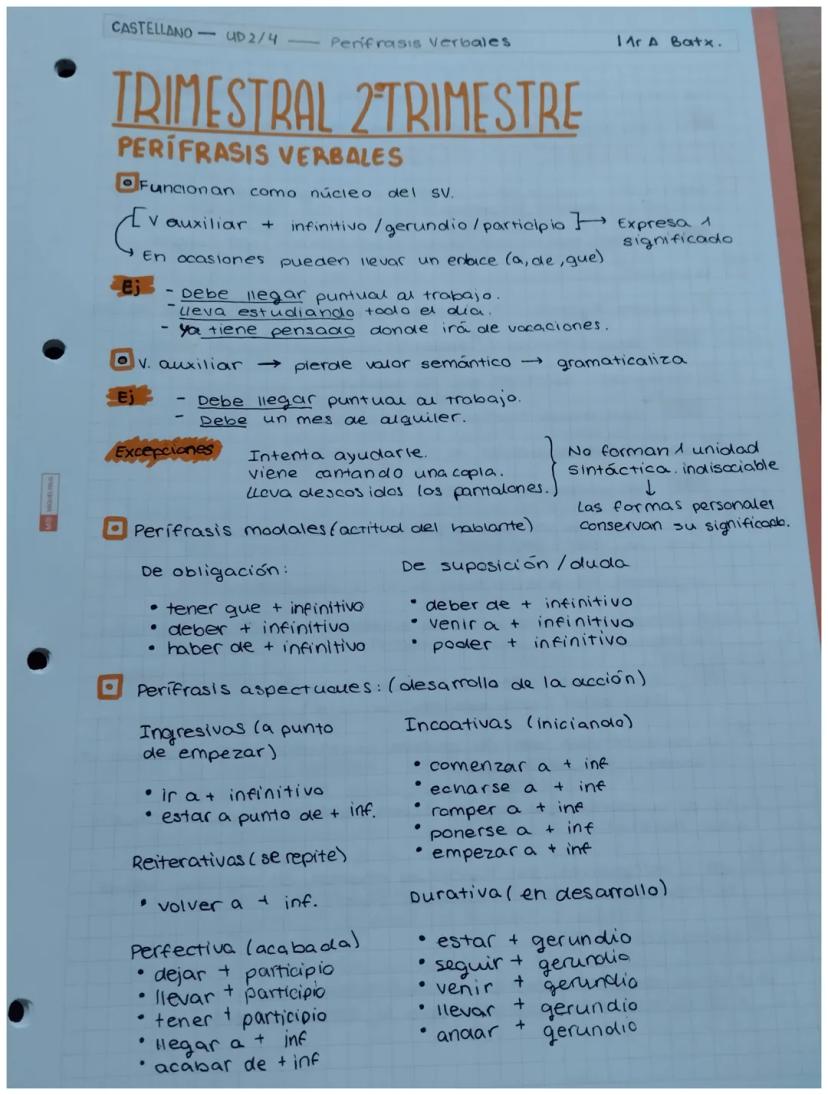 CASTELLANO — UD2/4 — Perífrasis Verbales 1r A Batx.
TRIMESTRAL 2º TRIMESTRE
PERÍFRASIS VERBALES
Funcionan como núcleo del SV.
[V auxiliar + infinitivo/gerundio/participio] → Expresa 1 significado
→ En ocasiones pueden llevar un enlace (a, de, que)
Ej - Debe llegar puntual al trabajo.
- Lleva estudiando todo el día.
- Ya tiene pensado donde irá de vacaciones.
V. auxiliar → pierde valor semántico → gramaticaliza
Ej - Debe llegar puntual al trabajo.
- Debe un mes de alquiler.
Excepciones
Intenta ayudarle.
Viene cantando una copla.
Lleva descosidos los pantalones.
No forman 1 unidad
sintáctica indisociable
↓
Las formas personales
conservan su significado.
Perífrasis modales (actitud del hablante)
De obligación:
• tener que + infinitivo
• deber + infinitivo
• haber de + infinitivo
De suposición/duda
• deber de + infinitivo
• venir a + infinitivo
• poder + infinitivo
Perífrasis aspectuales: (desarrollo de la acción)
Ingresivas (a punto
de empezar)
• ir a + infinitivo
• estar a punto de + inf.
Incoativas (iniciando)
• comenzar a + inf
• echarse a + inf
• romper a + inf
• ponerse a + inf
• empezar a + inf
Reiterativas (se repite)
• volver a + inf.
Durativa (en desarrollo)
• estar + gerundio
• seguir + gerundio
• venir + gerundio
• llevar + gerundio
• andar + gerundio
Perfectiva (acabada)
• dejar + participio
• llevar + participio
• tener + participio
• llegar a + inf
• acabar de + inf